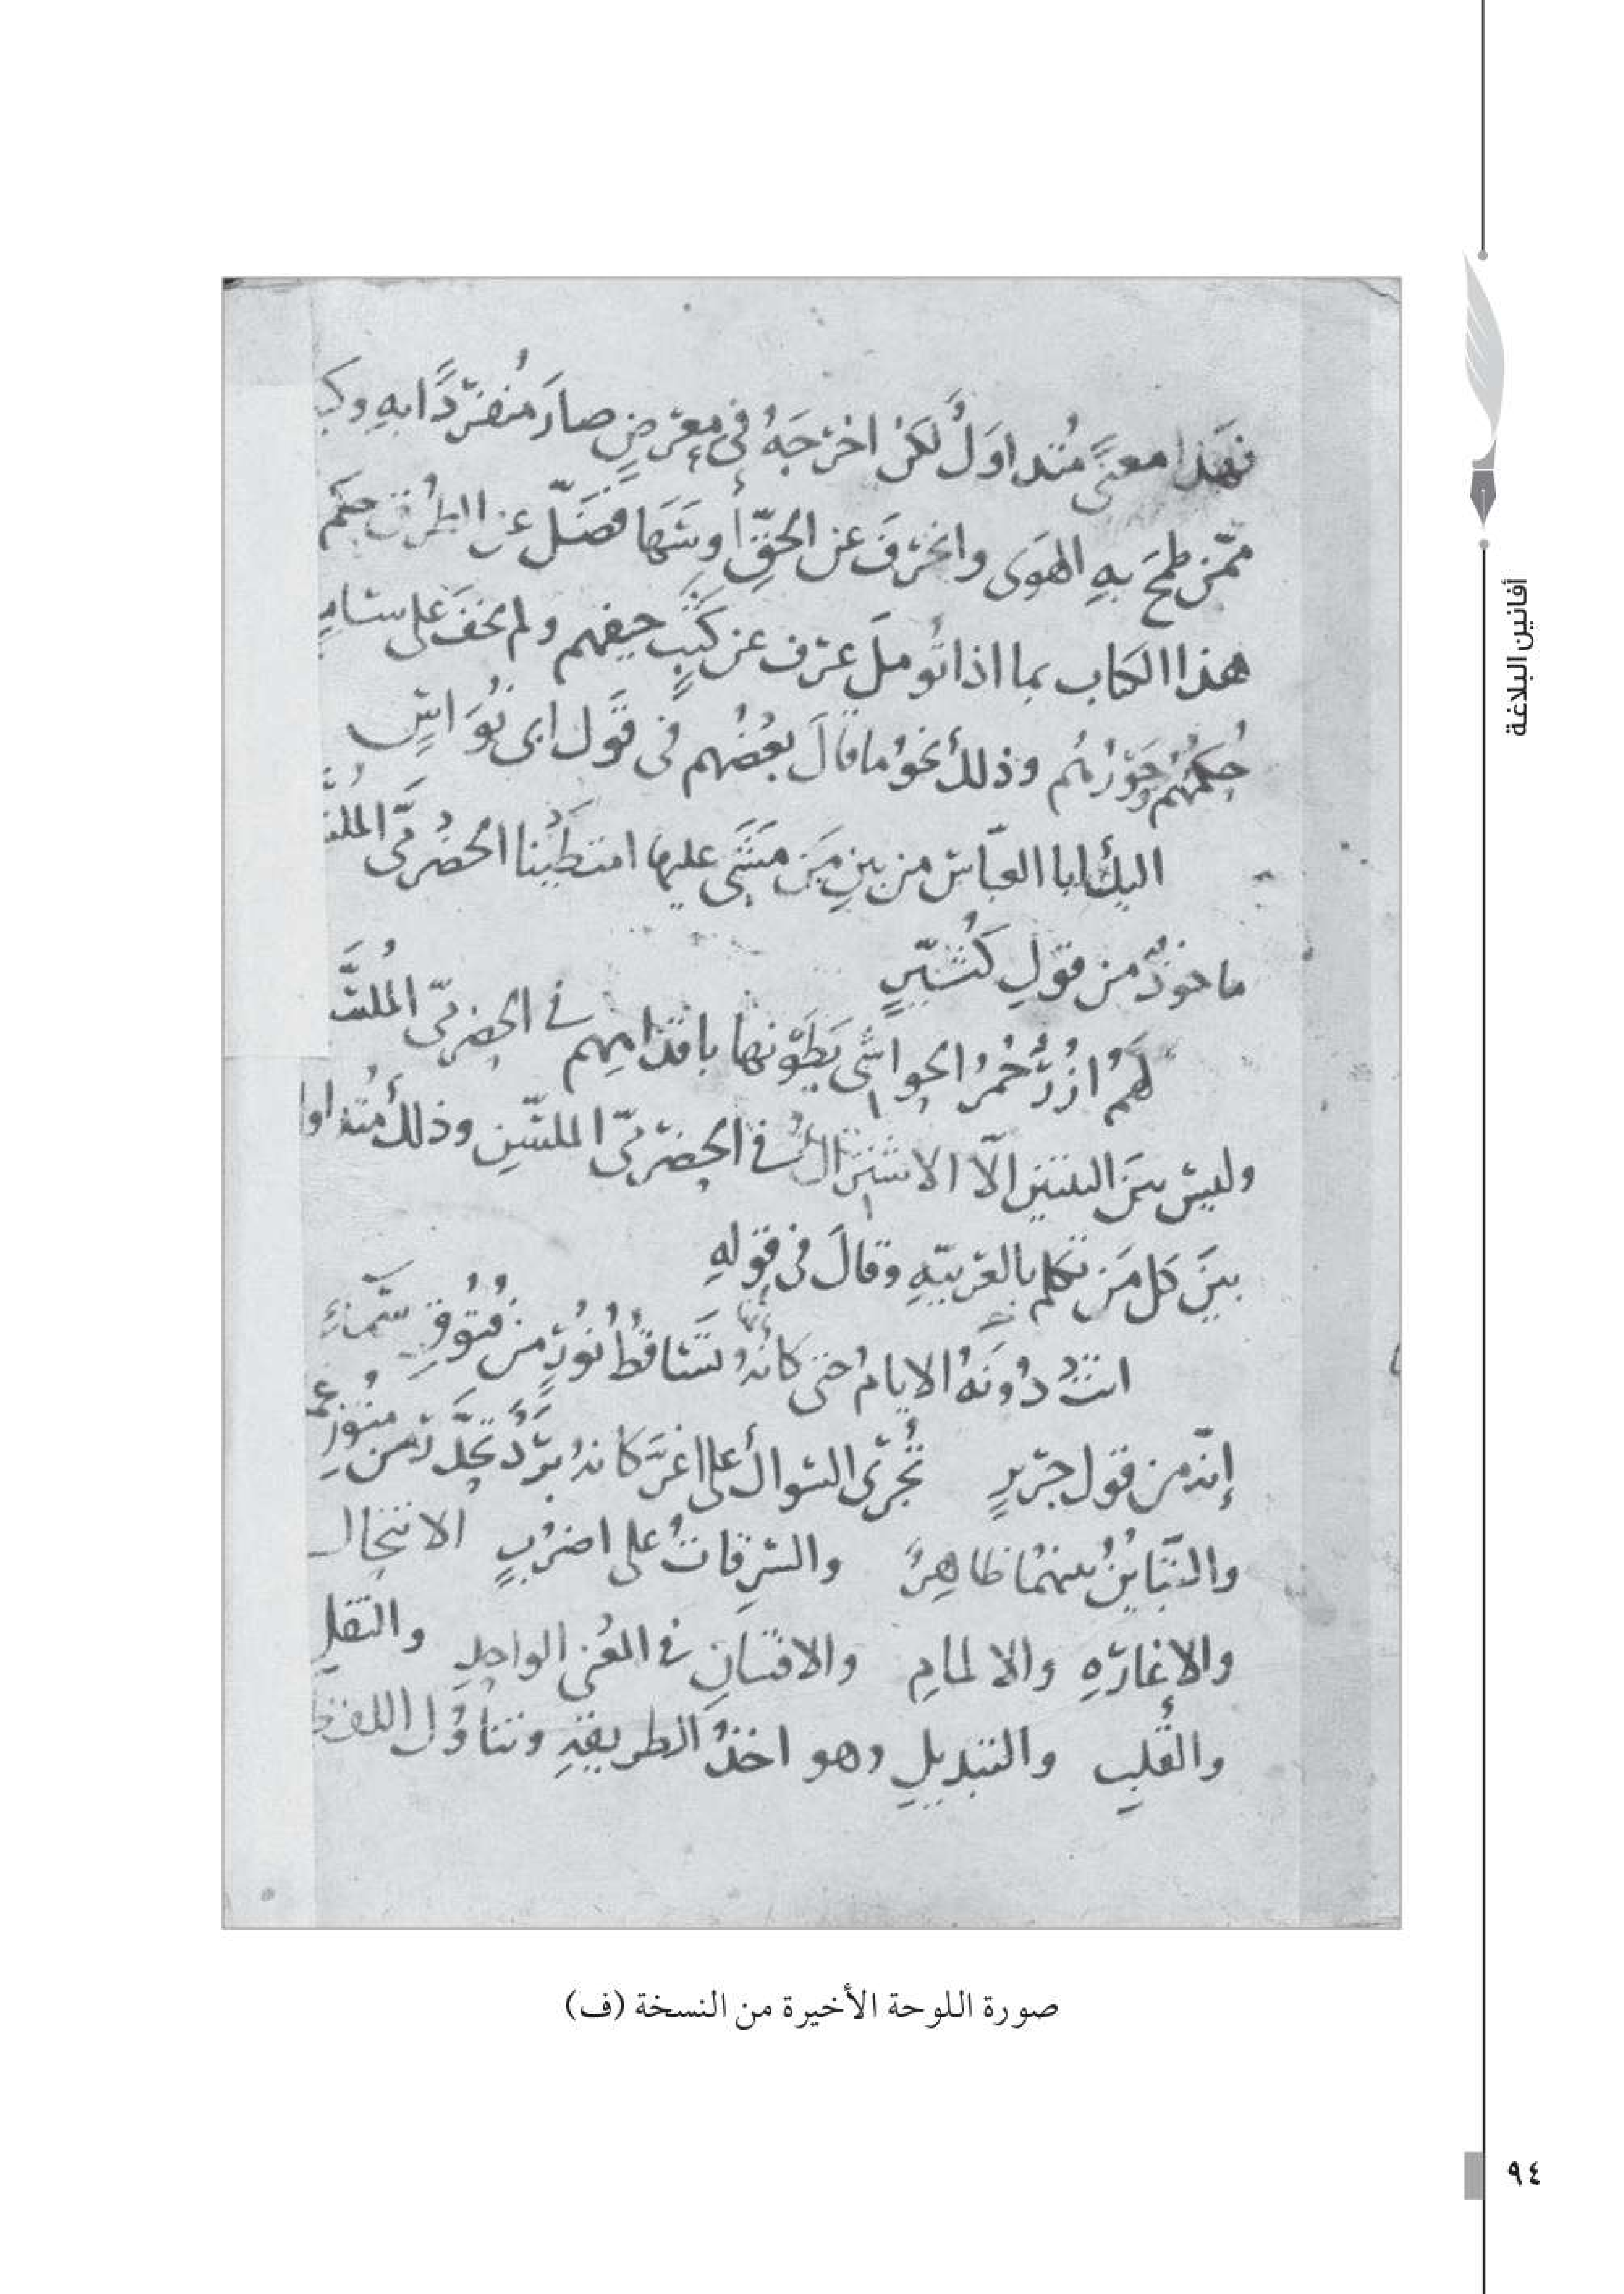 فهذا معنًى مُتداوَلٌ لكنْ اخرَجَهُ في مِعْرَضٍ صارَ مُنفَرِدًا به
ممّن طمح بهِ الهَوَى وانحرَفَ عن الحقِّ أو سَهَا فَضَلّ عن الطُرُقِ
هذا الكتاب بما اذا تُؤُمِّلَ عرف عن كَثَبٍ حيفهم ولم يخفَ على
حُكمُهُم وجَوْرُهُم وذلك نحوُ ما قالَ بعضُهم في قَول ابي نُوَاسٍ
اليك ابا العبّاس من بينِ مَن مَشَى عليها امتَطَيْنا الحَضْرَمِيَّ
ماخوذٌ من قولِ كُثَيِّرٍ
لهُمُ اُزُرٌ حُمْرُ الحواشي يَطَوْنَها باقدامِهِم في الحضرميّ المُلسَّ
وليسَ بينَ البيتينِ الّا الاشتراك في الحضرميّ الملسّنِ وذلك
بينَ كل مَن تكلم بالعَرَبيّهِ وقالَ في قولهِ
اتتْ دُونَهُ الايامُ حتى كانهُ تَساقُطُ نُورٍ من فُتُوقِ سَماءِ
إنّه من قول جَرِيرٍ تُجْرِي السّواكَ على اغرَّ كانه بَرَدٌ تحَدَّرَ من
والتَّبايُنُ بينهُمَا ظاهِرٌ والسَّرِقاتُ على اضرُبٍ الانتحال
والاغارَهِ والالمامِ والافتنانِ في المعْنَى الواحِدِ والنَّقلِ
والقَلبِ والتبديلِ وهو اخذُ الطريقَهِ وتناوُل اللفظ
صورة اللوحة الأخيرة من النسخة (ف)
أفانين البلاغة
٩٤